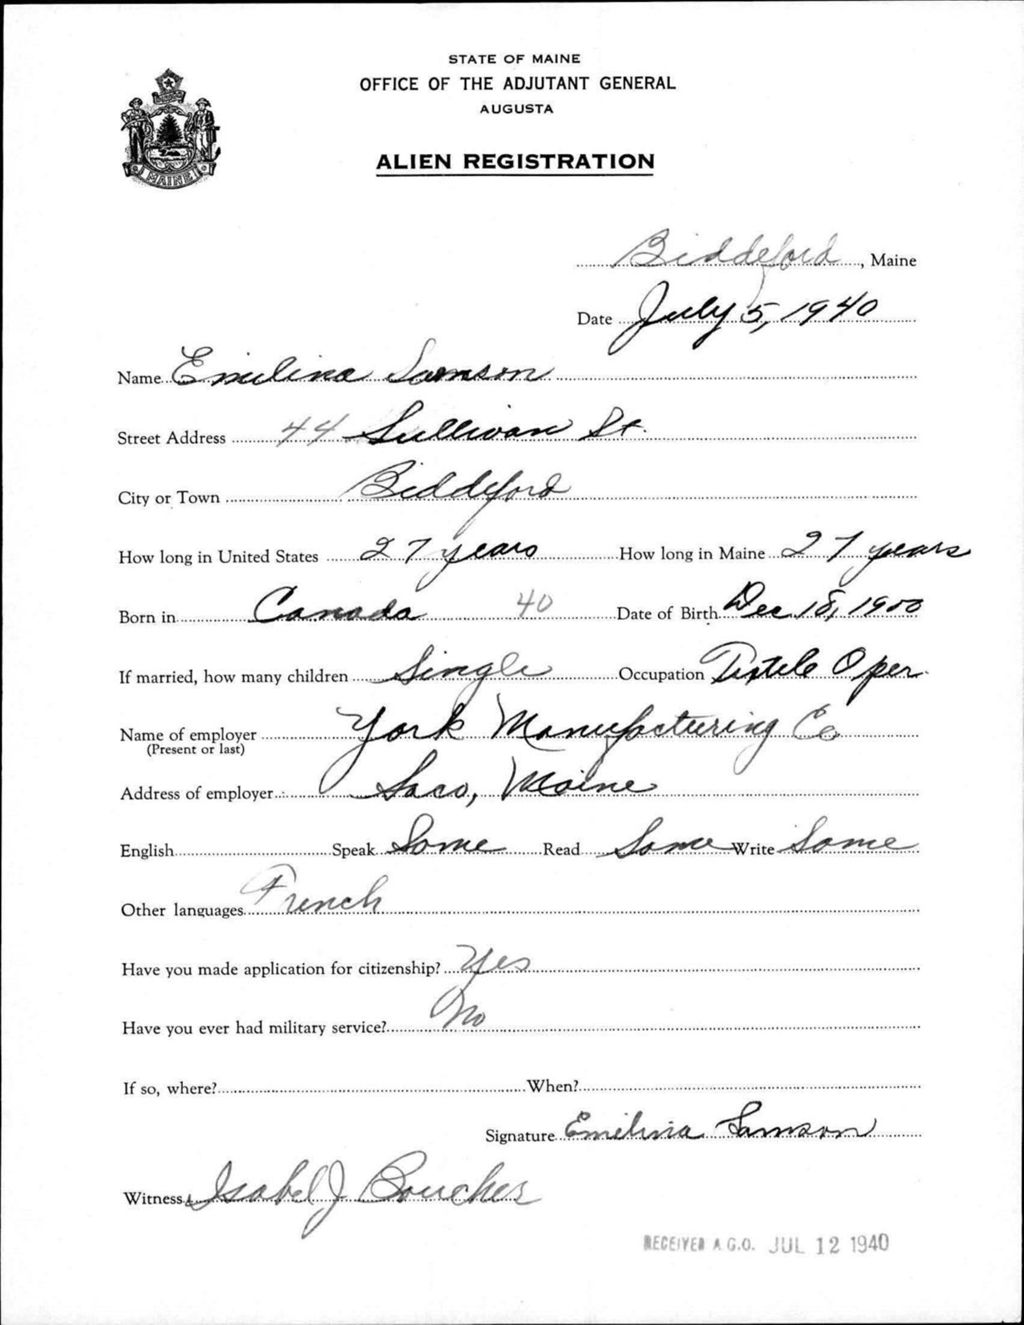 STATE OF MAINE
OFFICE OF THE ADJUTANT GENERAL
AUGUSTA
ALIEN REGISTRATION
MAINE
Biddeford, Maine
Date July 5, 1940
Name Emilina Samson
Street Address 44 Sullivan St.
City or Town Biddeford
How long in United States 27 years How long in Maine 27 years
Born in Canada 40 Date of Birth Dec 18, 1900
If married, how many children Single Occupation Textile Oper
Name of employer York Manufacturing Co
(Present or last)
Address of employer Saco, Maine
English Speak Some Read Some Write Some
Other languages French
Have you made application for citizenship? Yes
Have you ever had military service? No
If so, where? When?
Signature Emilina Samson
Witness Isabel J Boucher
RECEIVED A.G.O. JUL 12 1940